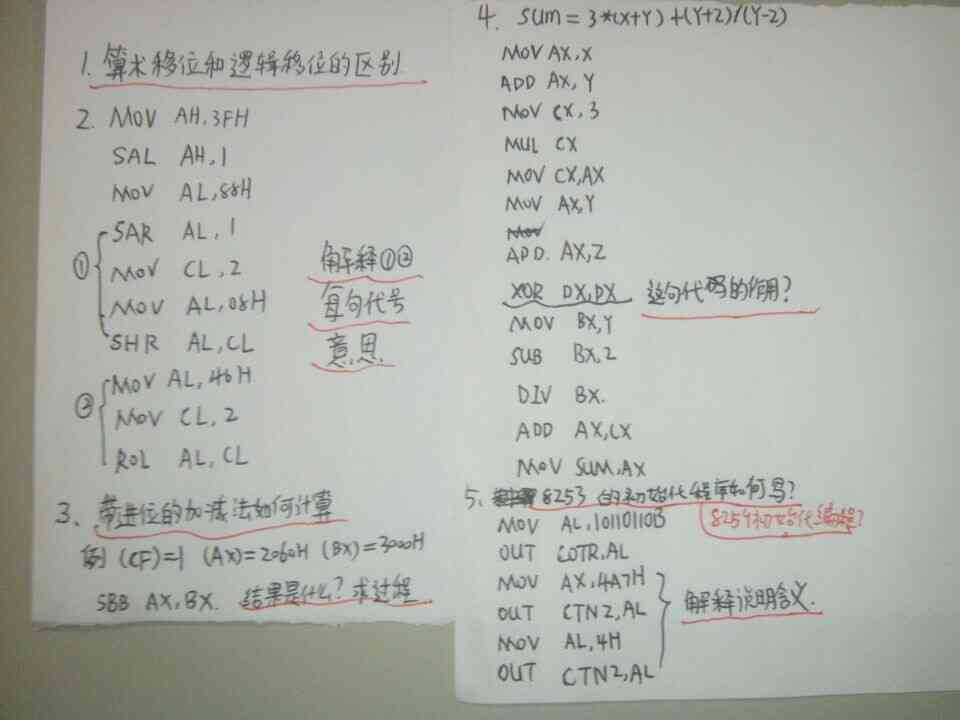 1. 算术移位和逻辑移位的区别
2. MOV AH,3FH
SAL AH,1
MOV AL,88H
① SAR AL,1
MOV CL,2
MOV AL,08H
SHR AL,CL
解释①②
每句代号
意思
② MOV AL,46H
MOV CL,2
ROL AL,CL
3、带进位的加减法如何计算
例 (CF)=1 (AX)=2060H (BX)=3000H
SBB AX,BX. 结果是什么?求过程
4. SUM=3*(X+Y)+(Y+Z)/(Y-2)
MOV AX,X
ADD AX,Y
MOV CX,3
MUL CX
MOV CX,AX
MOV AX,Y
MOV
ADD. AX,Z
XOR DX,DX 这句代码的作用?
MOV BX,Y
SUB BX,2
DIV BX.
ADD AX,CX
MOV SUM,AX
5、8253的初始化程序如何写?
8259初始化编程?
MOV AL,10110110B
OUT COTR,AL
MOV AX,4A7H
OUT CTN2,AL
MOV AL,4H
OUT CTN2,AL
解释说明含义.